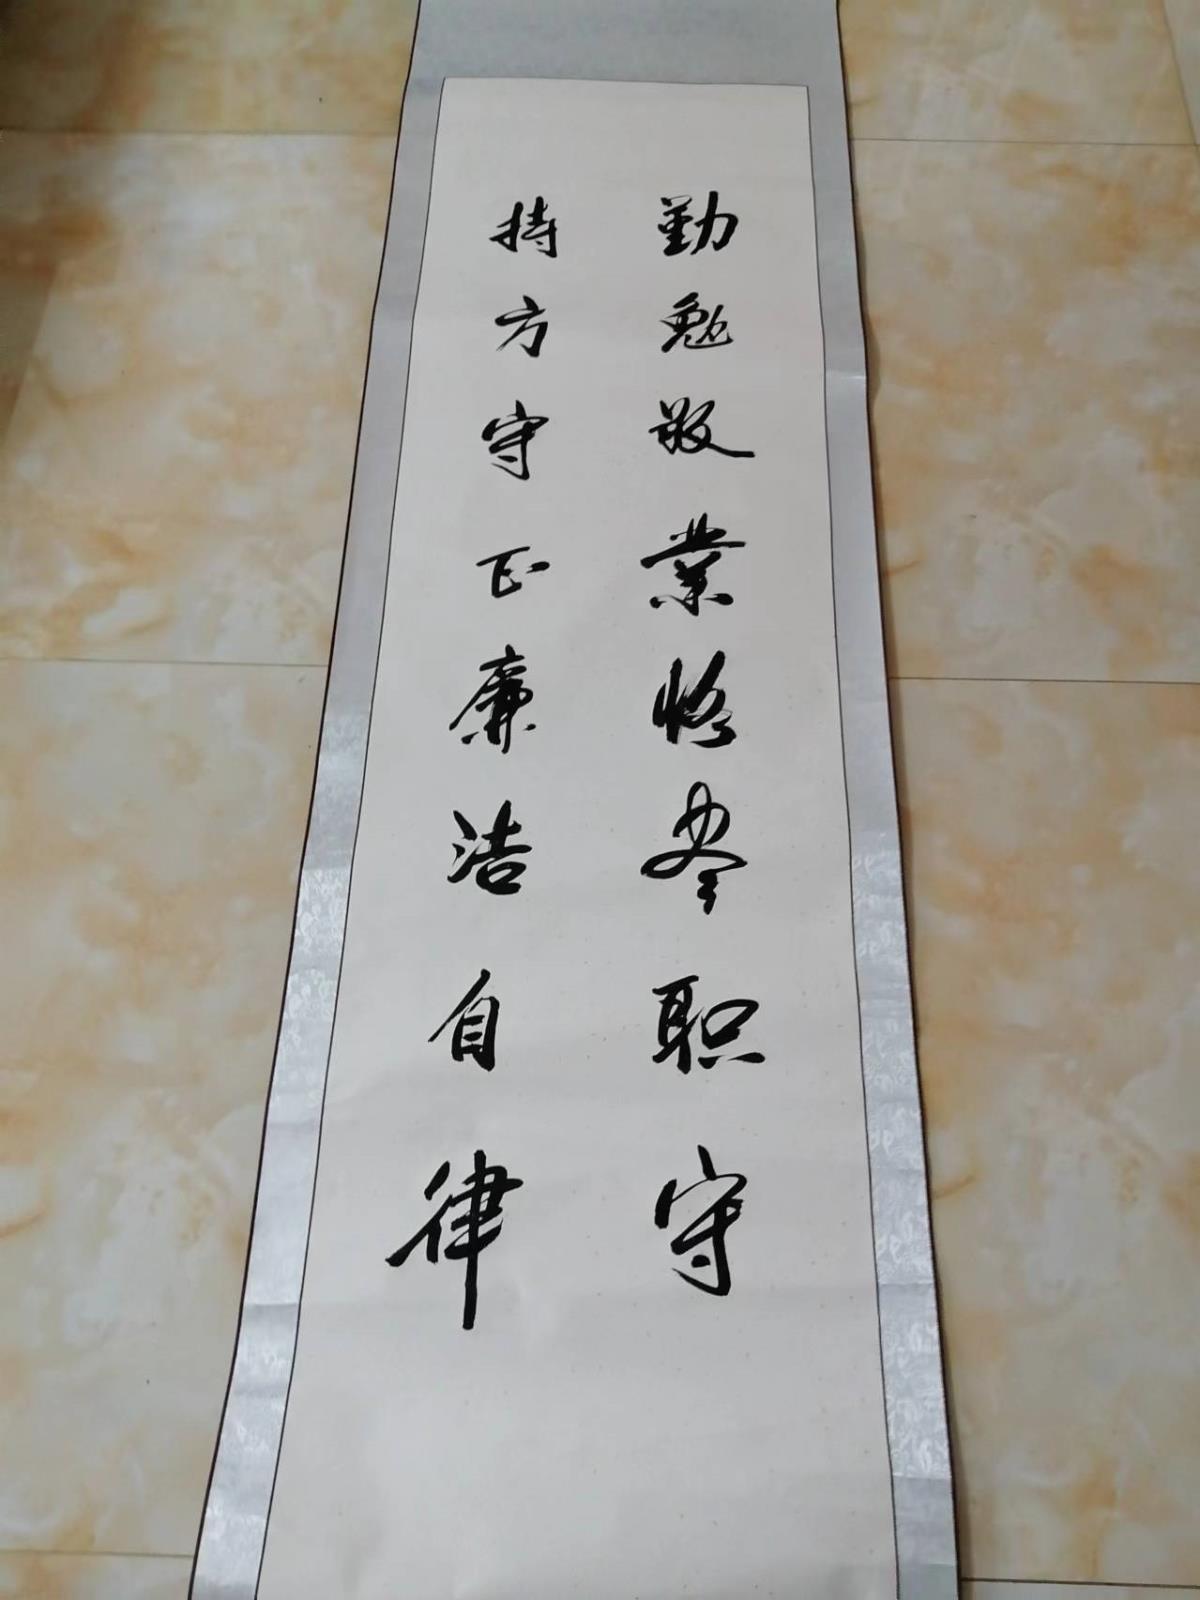 勤勉敬業恪尽职守
持方守正廉洁自律